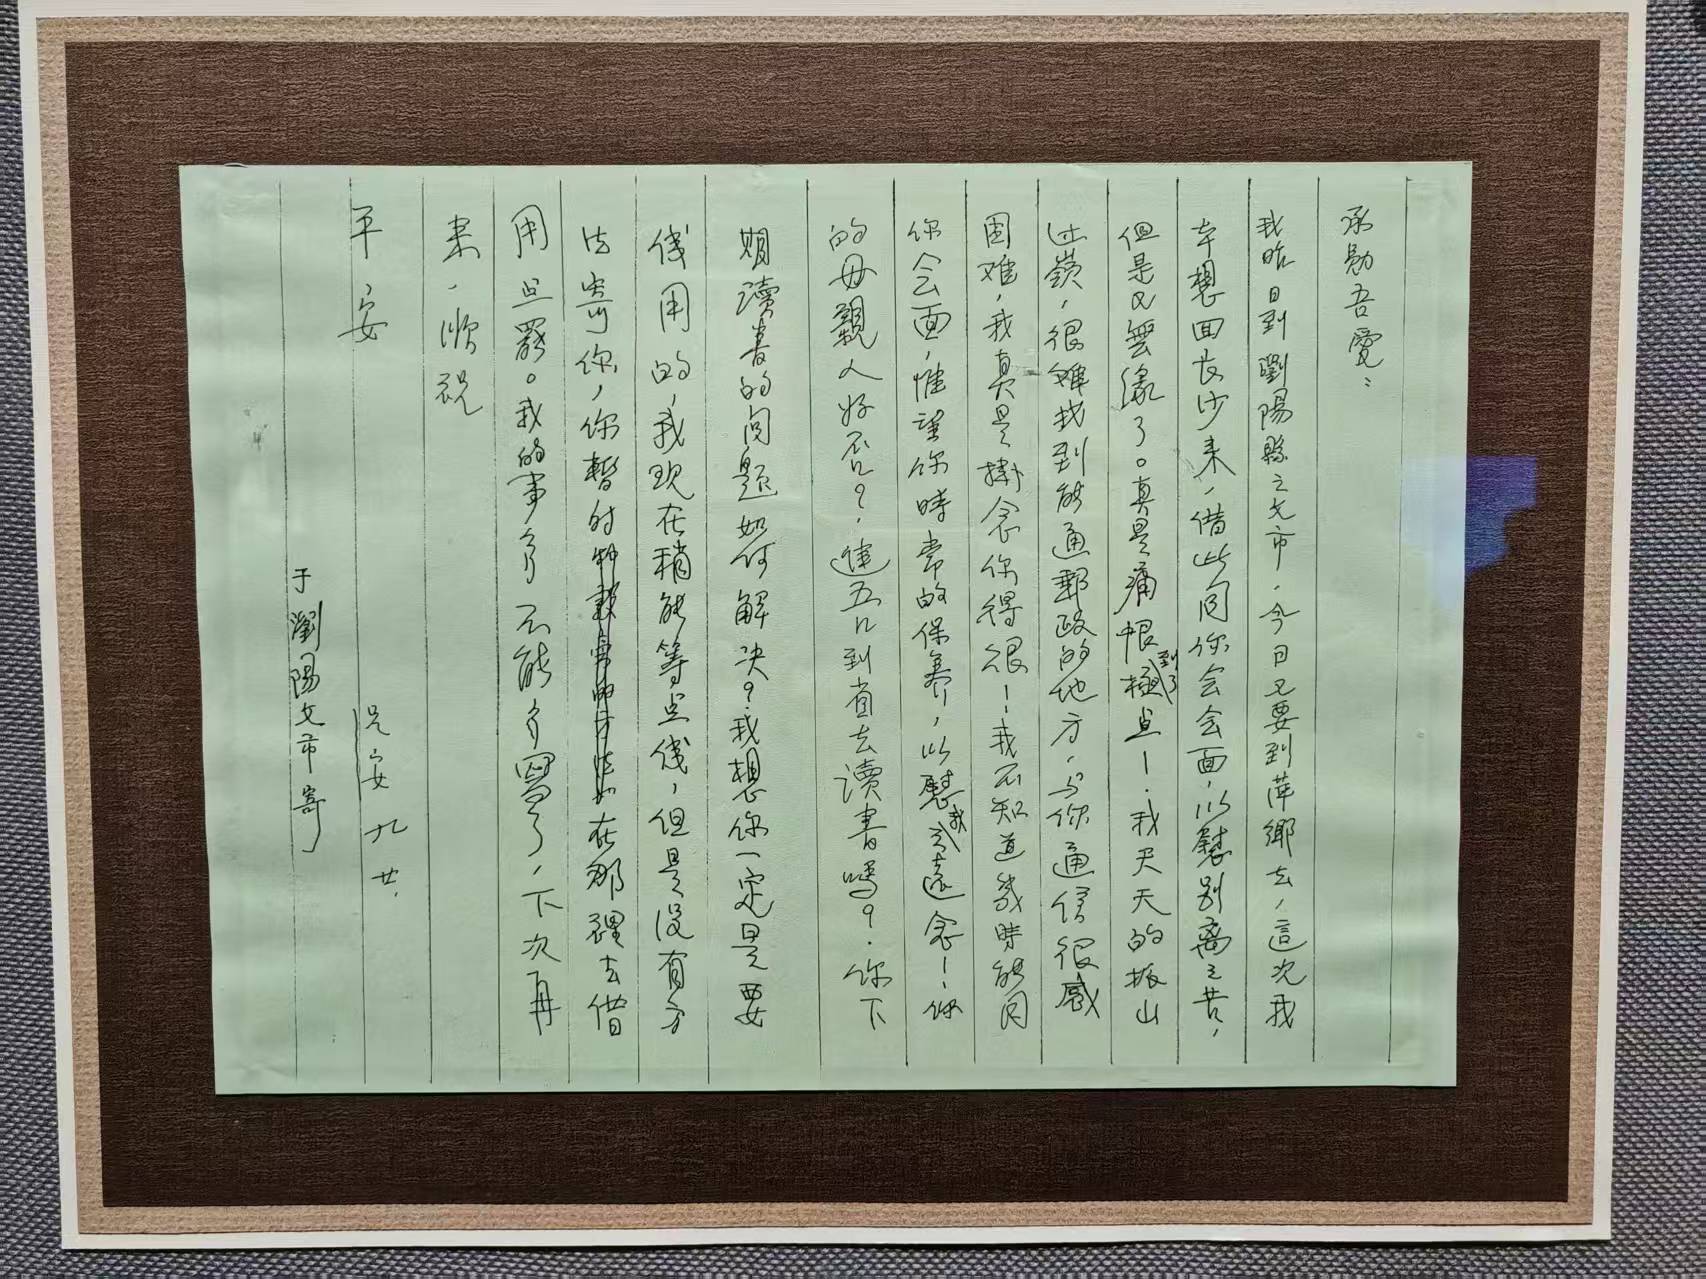 承勛吾覽：
我昨日到瀏陽縣之文市．今日又要到萍鄉去，這次我
本想回長沙来，借此同你会会面，以慰别离之苦，
但是又無缘了。真是痛恨到極了点！．我天天的振山
过嶺，很难找到能通郵政的地方．与你通信很感
困难，我真是掛念你得很！我不知道幾時能同
你会面，惟望你時常的保养，以慰我遠念！你
的母親人好否？．達五兄到省去讀書嗎？．你下
期讀書的问题如何解决？我想你一定是要
伐用的，我现在稍能筹点伐，但是没有方
法寄你，你暫时在那裡去借
用点罷。我的事多不能多寫了，下次再
来．順祝
平安
况安 九 廿．
于瀏陽文市寄